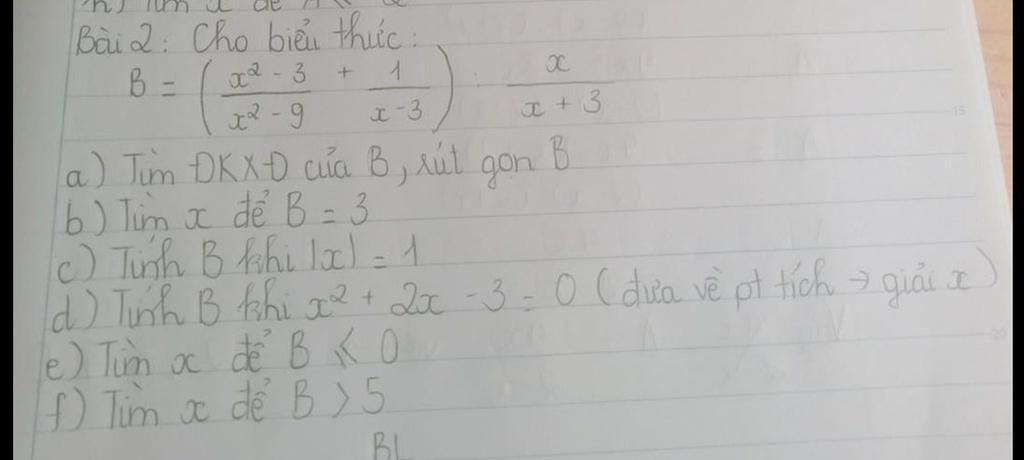 h) Tìm x để
Bài 2: Cho biểu thức:
B = ( (x² - 3)/(x² - 9) + 1/(x - 3) ) . x/(x + 3)
a) Tìm ĐKXĐ của B, rút gọn B
b) Tìm x để B = 3
c) Tính B khi |x| = 1
d) Tính B khi x² + 2x - 3 = 0 (đưa về pt tích → giải x)
e) Tìm x để B ≤ 0
f) Tìm x để B > 5
15
20